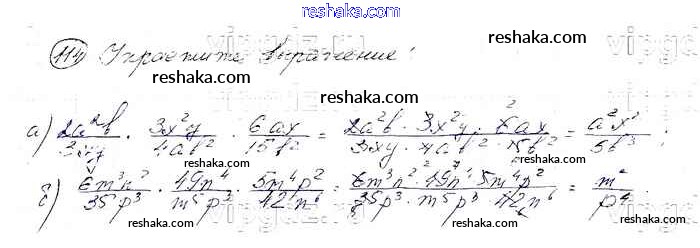 reshaka.com
114 Упростите выражение:
reshaka.com reshaka.com
а) 2a²b/3xy · 3x²y/4ab² · 6ax/15b² = 2a²b · 3x²y · 6ax/3xy · 4ab² · 15b² = a²x²/5b³ ;
reshaka.com reshaka.com
б) 6m³n²/35p³ · 49n⁴/m⁵p³ · 5m⁴p²/42n⁶ = 6m³n² · 49n⁴ · 5m⁴p²/35p³ · m⁵p³ · 42n⁶ = m²/p⁴ .
reshaka.com reshaka.com
reshaka.com